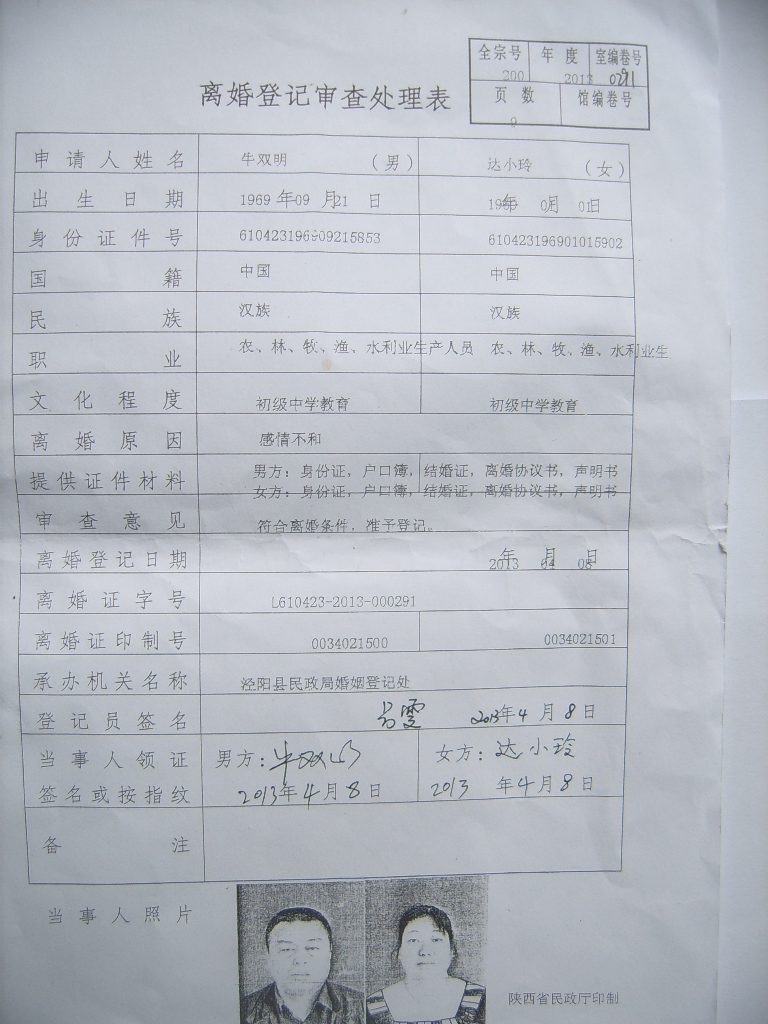 全宗号 年度 室编卷号
200 2013 0291
页数 馆编卷号
9
离婚登记审查处理表
申请人姓名 牛双明 (男) 达小玲 (女)
出生日期 1969 年 09 月 21 日 年 月 01 日
身份证件号 610423196909215853 610423196901015902
国籍 中国 中国
民族 汉族 汉族
职业 农、林、牧、渔、水利业生产人员 农、林、牧、渔、水利业生
文化程度 初级中学教育 初级中学教育
离婚原因 感情不和
提供证件材料 男方：身份证，户口簿，结婚证，离婚协议书，声明书
女方：身份证，户口簿，结婚证，离婚协议书，声明书
审查意见 符合离婚条件，准予登记。
离婚登记日期 2013 年 04 月 08 日
离婚证字号 L610423-2013-000291
离婚证印制号 0034021500 0034021501
承办机关名称 泾阳县民政局婚姻登记处
登记员签名 2013年 4 月 8 日
当事人领证 男方：牛双明 女方：达小玲
签名或按指纹 2013年 4 月 8 日 2013 年 4 月 8 日
备注
当事人照片
陕西省民政厅印制